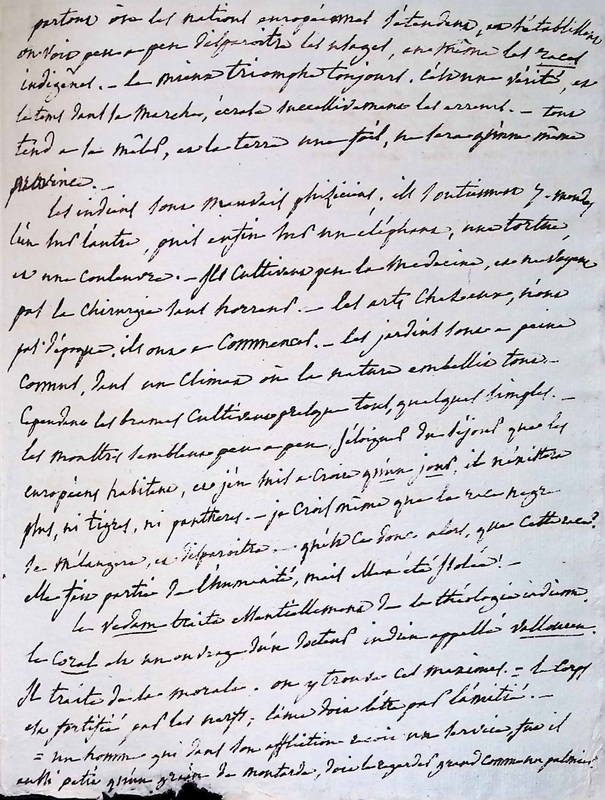 partout où les nations européennes s'étendent, et s'établissent
on voit peu a peu disparoitre les usages, et même les races
indigènes. - le mieux triomphe toujours. c'est une vérité, et
le tems dans sa marche, écrase successivement les erreurs. - tout
tend a se mêler, et la terre une fois, ne sera qu'une même
province. -
les indiens sont mauvais phisiciens. ils soutiennent 7. mondes
l'un sur l'autre, puis enfin sur un éléphant, une tortue
et une couleuvre. - ils cultivent peu la medecine, et ne voyent
pas la chirurgie sans horreur. - les arts chez eux, n'ont
pas d'époque, ils ont a commencer. - les jardins sont a peine
connus, dans un climat où la nature embellit tout. -
Cependant les brames cultivent presque tous, quelques simples. -
les monstres semblent peu a peu, s'éloigner du séjour que les
européens habitent, et j'en suis a croire qu'un jour, il n'existera
plus, ni tigres, ni pantheres. - je crois même que la race negre
se mêlangera, et disparoitra. - qu'est ce donc alors, que cette race?
elle fait partie de l'humanité, mais elle a été isolée! -
le vedam traite essentiellement de la théologie indienne.
le Coral est un ouvrage d'un docteur indien appellé vallouven.
Il traite de la morale. on y trouve ces maximes. = le corps
est fortifié par les nerfs; l'ame doit l'être par l'amitié. -
= un homme qui dans son affliction reçoit un service fut il
aussi petit qu'un grain de moutarde, doit le regarder grand comme un palmier